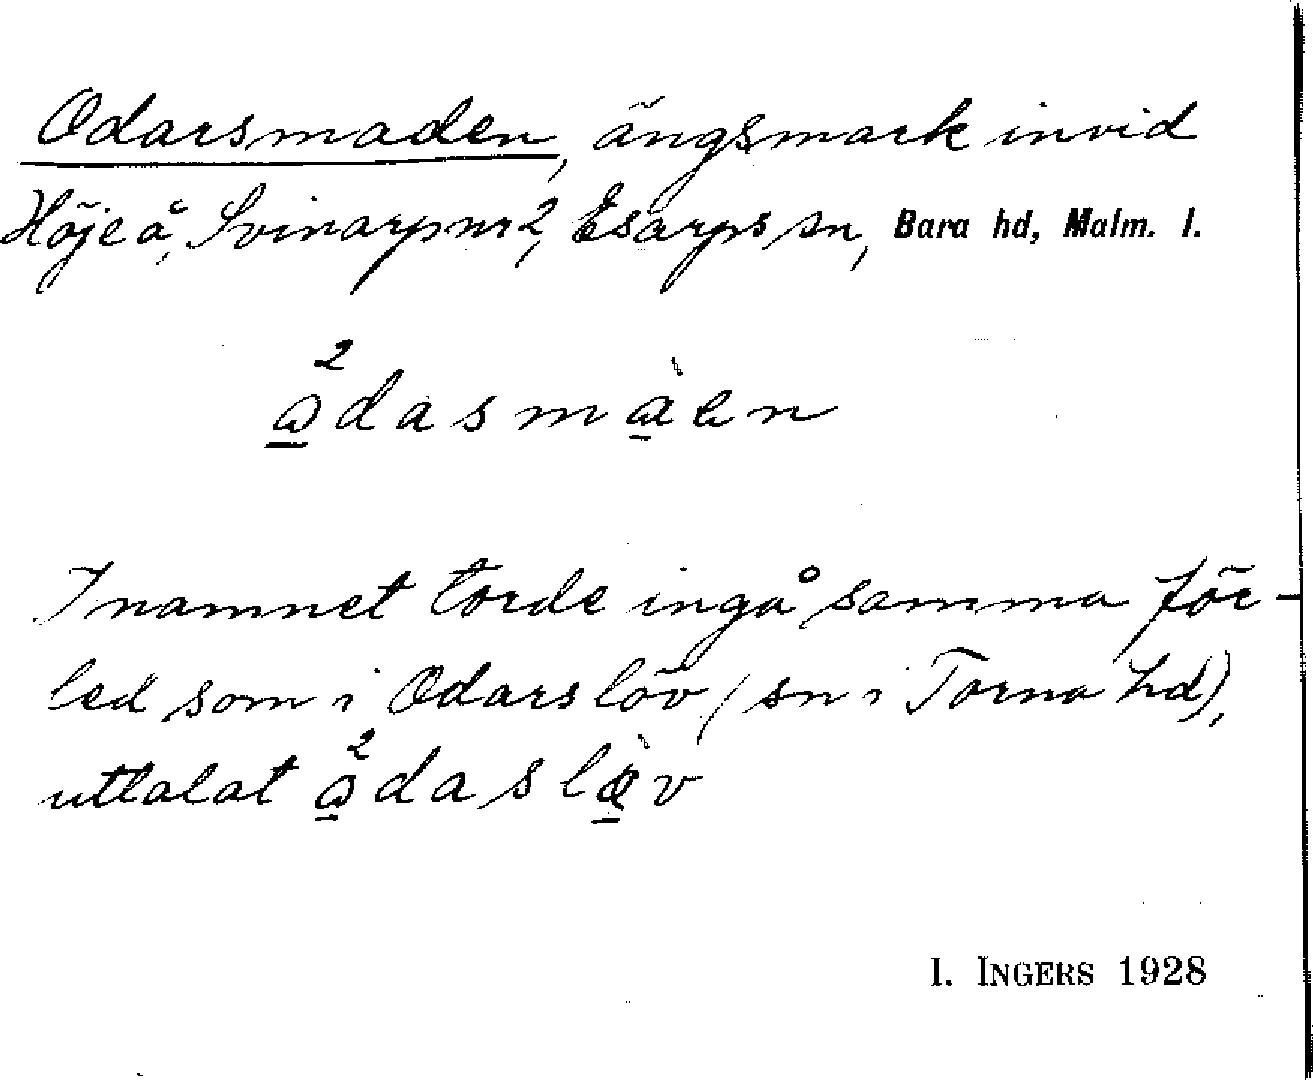 Odarsmaden, ängsmark invid
Höjeå, Svinarp nr 2, Esarps sn, Bara hd, Malm. l.
ꞷ²dasmàen
I namnet torde ingå samma för-
led som i Odarslöv (sn i Torna hd),
uttalat ꞷ²daslø̀v
I. INGERS 1928